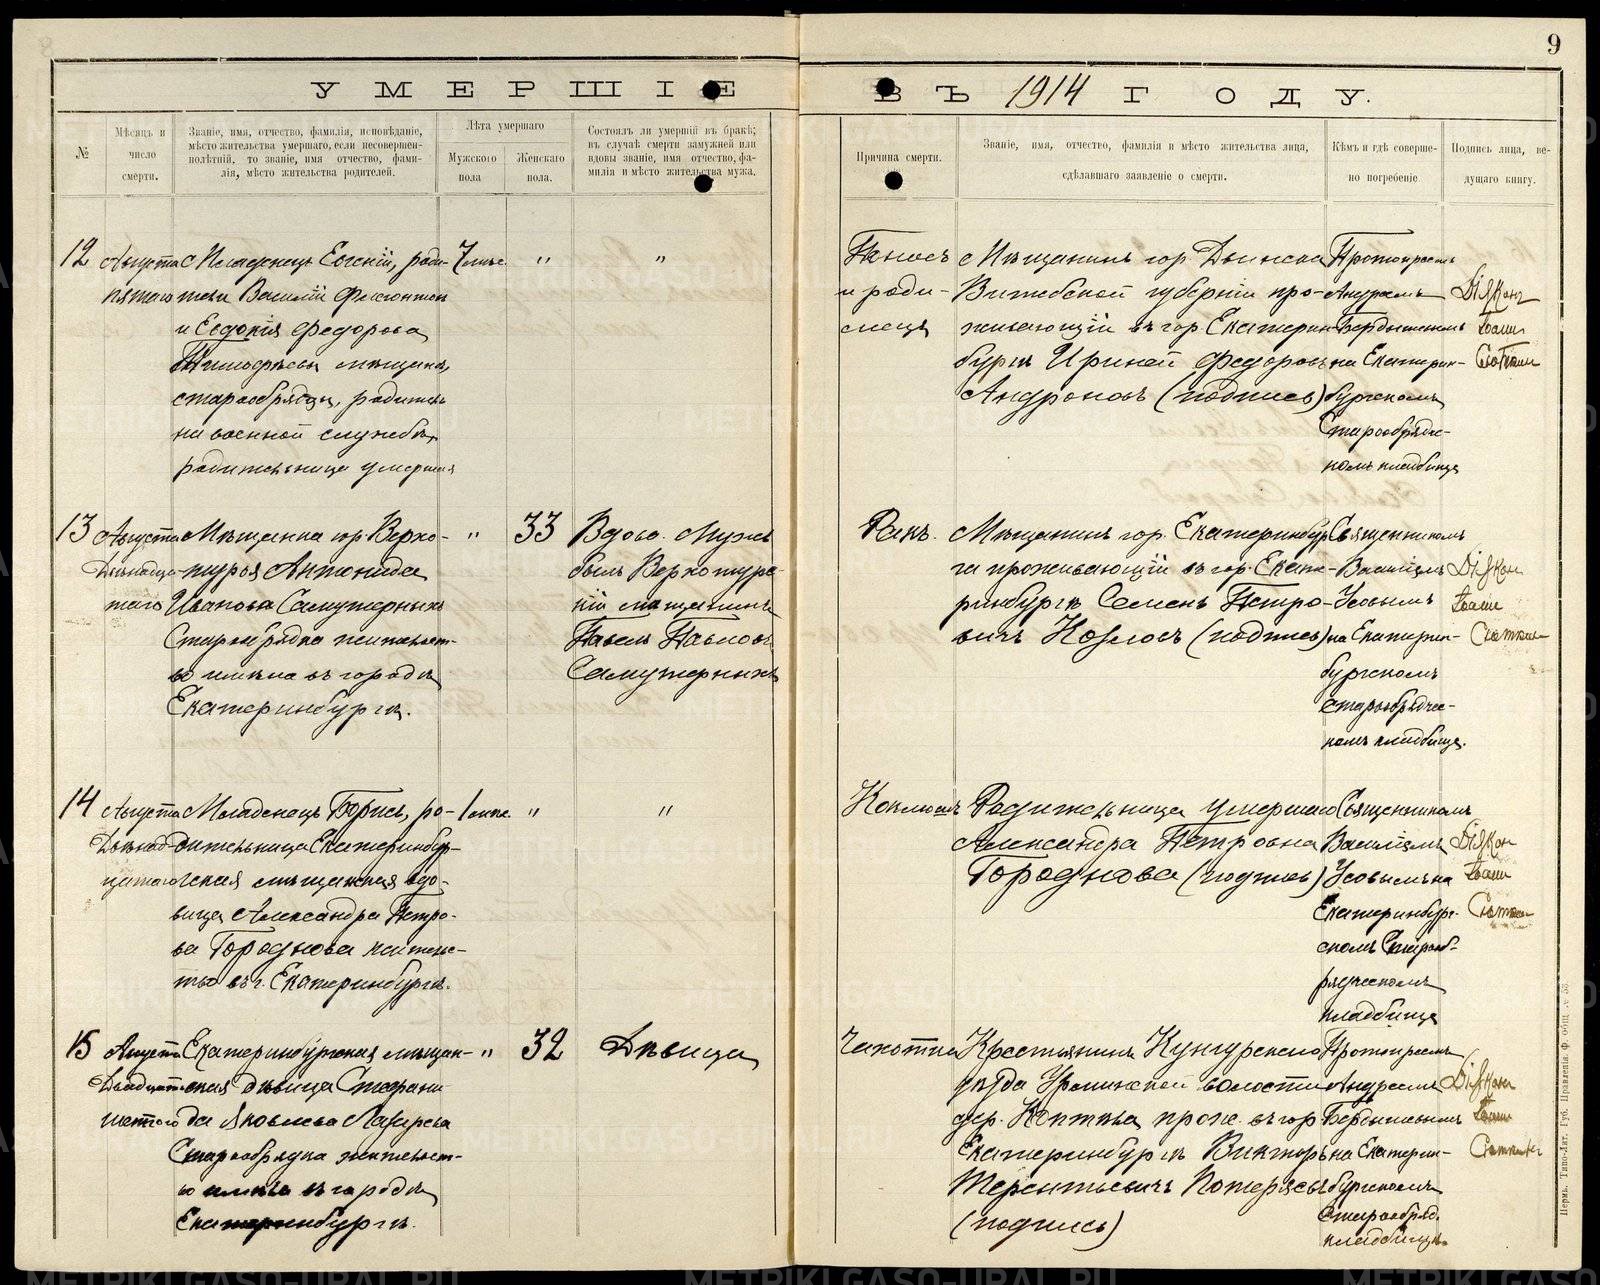 9
УМЕРШІЕ ВЪ 1914 ГОДУ.
№
Мѣсяцъ и
число
смерти.
Званіе, имя, отчество, фамилія, исповѣданіе,
мѣсто жительства умершаго, если несовершен-
нолѣтній, то званіе, имя отчество, фами-
лія, мѣсто жительства родителей.
Лѣта умершаго
Мужского
пола
Женскаго
пола.
Состоялъ ли умершій въ бракѣ;
въ случаѣ смерти замужней или
вдовы званіе, имя отчество, фа-
милія и мѣсто жительства мужа.
Причина смерти.
Званіе, имя, отчество, фамилія и мѣсто жительства лица,
сдѣлавшаго заявленіе о смерти.
Кѣмъ и гдѣ соверше-
но погребеніе
Подпись лица, ве-
дущаго книгу.
12
Августа
пятаго
Младенецъ Евгеній, роди-
тели Василій
и Евдокія Федорова
Тимофѣевы мѣщане,
старообрядцы, родитель
на военной службѣ,
родительница умершая
7 мѣс.
"
"
Поносъ
и роди-
мецъ
Мѣщанинъ гор. Двинска
Витебской губерніи про-
живающій въ гор. Екатерин-
бургѣ Ириней Федоровъ
Андроновъ (подпись)
Протоіреемъ
Андреемъ
Бердышевымъ
на Екатерин-
бургскомъ
Старообрядче-
комъ кладбищѣ
Діяконъ
Іоаннъ
13
Августа
Двѣнадца-
таго
Мѣщанка гор. Верхо-
турья Антонида
Иванова Самутерныхъ
Старообрядка жительст-
во имѣла въ городѣ
Екатеринбургѣ.
"
33
Вдова. Мужъ
былъ Верхотурс-
кій мѣщанинъ
Павелъ Павловъ
Самутерныхъ
Ракъ.
Мѣщанинъ гор. Екатеринбур-
га проживающій въ гор. Екате-
ринбургѣ Семенъ Петро-
вичъ Козловъ (подпись)
Священникомъ
Василіемъ
Усовымъ
на Екатерин-
бургскомъ
старообрядчес-
комъ кладбищѣ.
Діяконъ
Іоаннъ
14
Августа
Двѣнад-
цатаго
Младенецъ Борисъ, ро-
дительница Екатеринбур-
гская мѣщанская вдо-
вица Александра Петро-
ва Городнова житель-
тво въ г. Екатеринбургѣ.
1 мѣс.
"
"
Коклюшъ
Родительница умершаго
Александра Петровна
Городнова (подпись)
Священникомъ
Василіемъ
Усовымъ на
Екатеринбург-
скомъ Старооб-
рядческомъ
кладбищѣ
Діяконъ
Іоаннъ
15
Августа
Двадцать
шестого
Екатеринбургская мѣщан-
ская дѣвица Стефани-
да Яковлева Лазарева
Старообрядка жительст-
во имѣла въ городѣ
Екатеринбургѣ.
"
32
Дѣвица
Чахотка
Крестьянинъ Кунгурскаго
уѣзда волости
дер. прож. въ гор.
Екатеринбургѣ Викторъ
Терентьевичъ Потеряевъ
(подпись)
Протоіреемъ
Андреемъ
Бердышевымъ
на Екатерин-
бургскомъ
старообряд.
кладбищѣ.
Діяконъ
Іоаннъ
Пермь. Типо-Лит. Губ. Правленія.